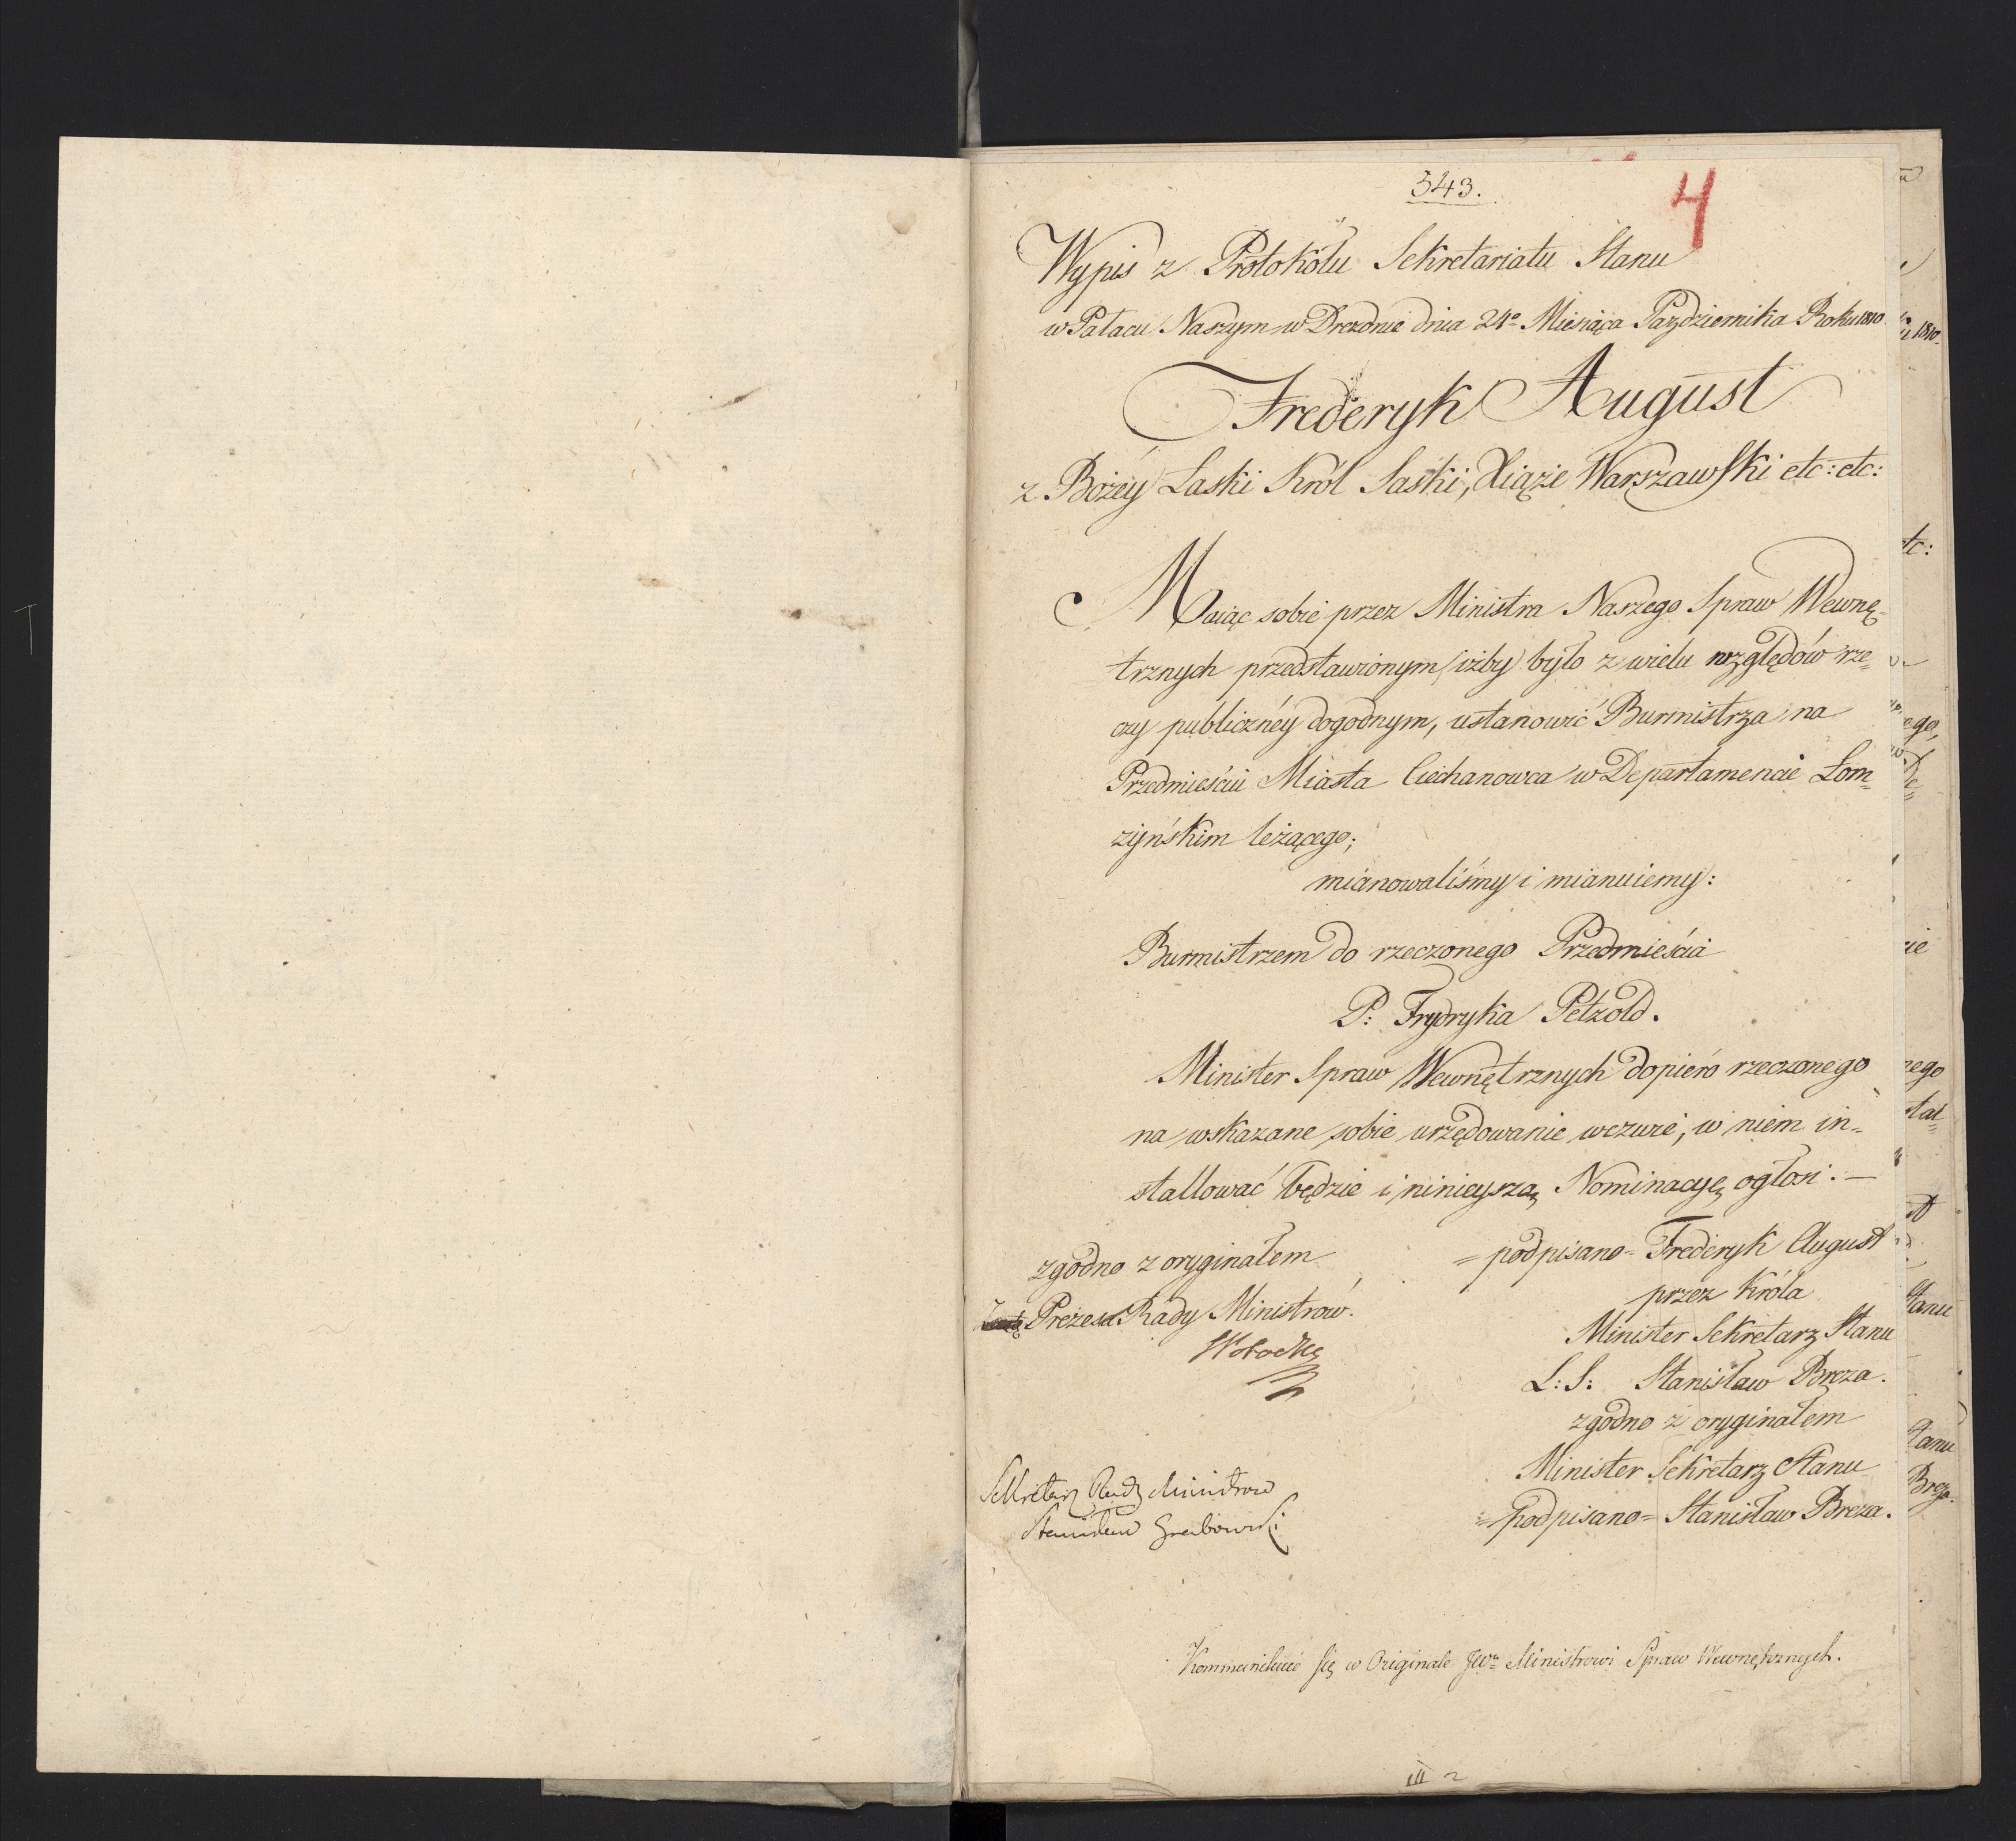 543.
4
Wypis z Protokółu Sekretariatu Stanu
w Pałacu Naszym w Dreznie dnia 24º Miesiąca Października Roku 1810
Frederyk August
z Bożey Łaski Król Saski, Xiąże Warszawski etc: etc:
Maiąc sobie przez Ministra Naszego Spraw Wewnę-
trznych przedstawionym, iżby było z wielu względów rze=
czy publicznéy dogodnym, ustanowić Burmistrza na
Przedmieściu Miasta Ciechanowca w Departamencie Łom=
żyńskim leżącego;
mianowaliśmy i mianuiemy:
Burmistrzem do rzeczonego Przedmieścia
P: Frydryka Petzold.
Minister Spraw Wewnętrznych dopiéro rzeczonego
na wskazane sobie urzędowanie wezwie, w niem in=
stallować będzie i ninieyszą Nominacyę ogłosi: —
zgodno z oryginałem
= podpisano = Frederyk August
przez Króla
Prezesa Rady Ministrów.
Minister Sekretarz Stanu
L: S: Stanisław Breza.
zgodno z oryginałem
Minister Sekretarz Stanu
Sekretarz Rady Ministrow
= podpisano = Stanisław Breza.
Stanisław Grabowski
Kommunikuie się w Originale JWu Ministrowi Spraw Wewnętrznych.